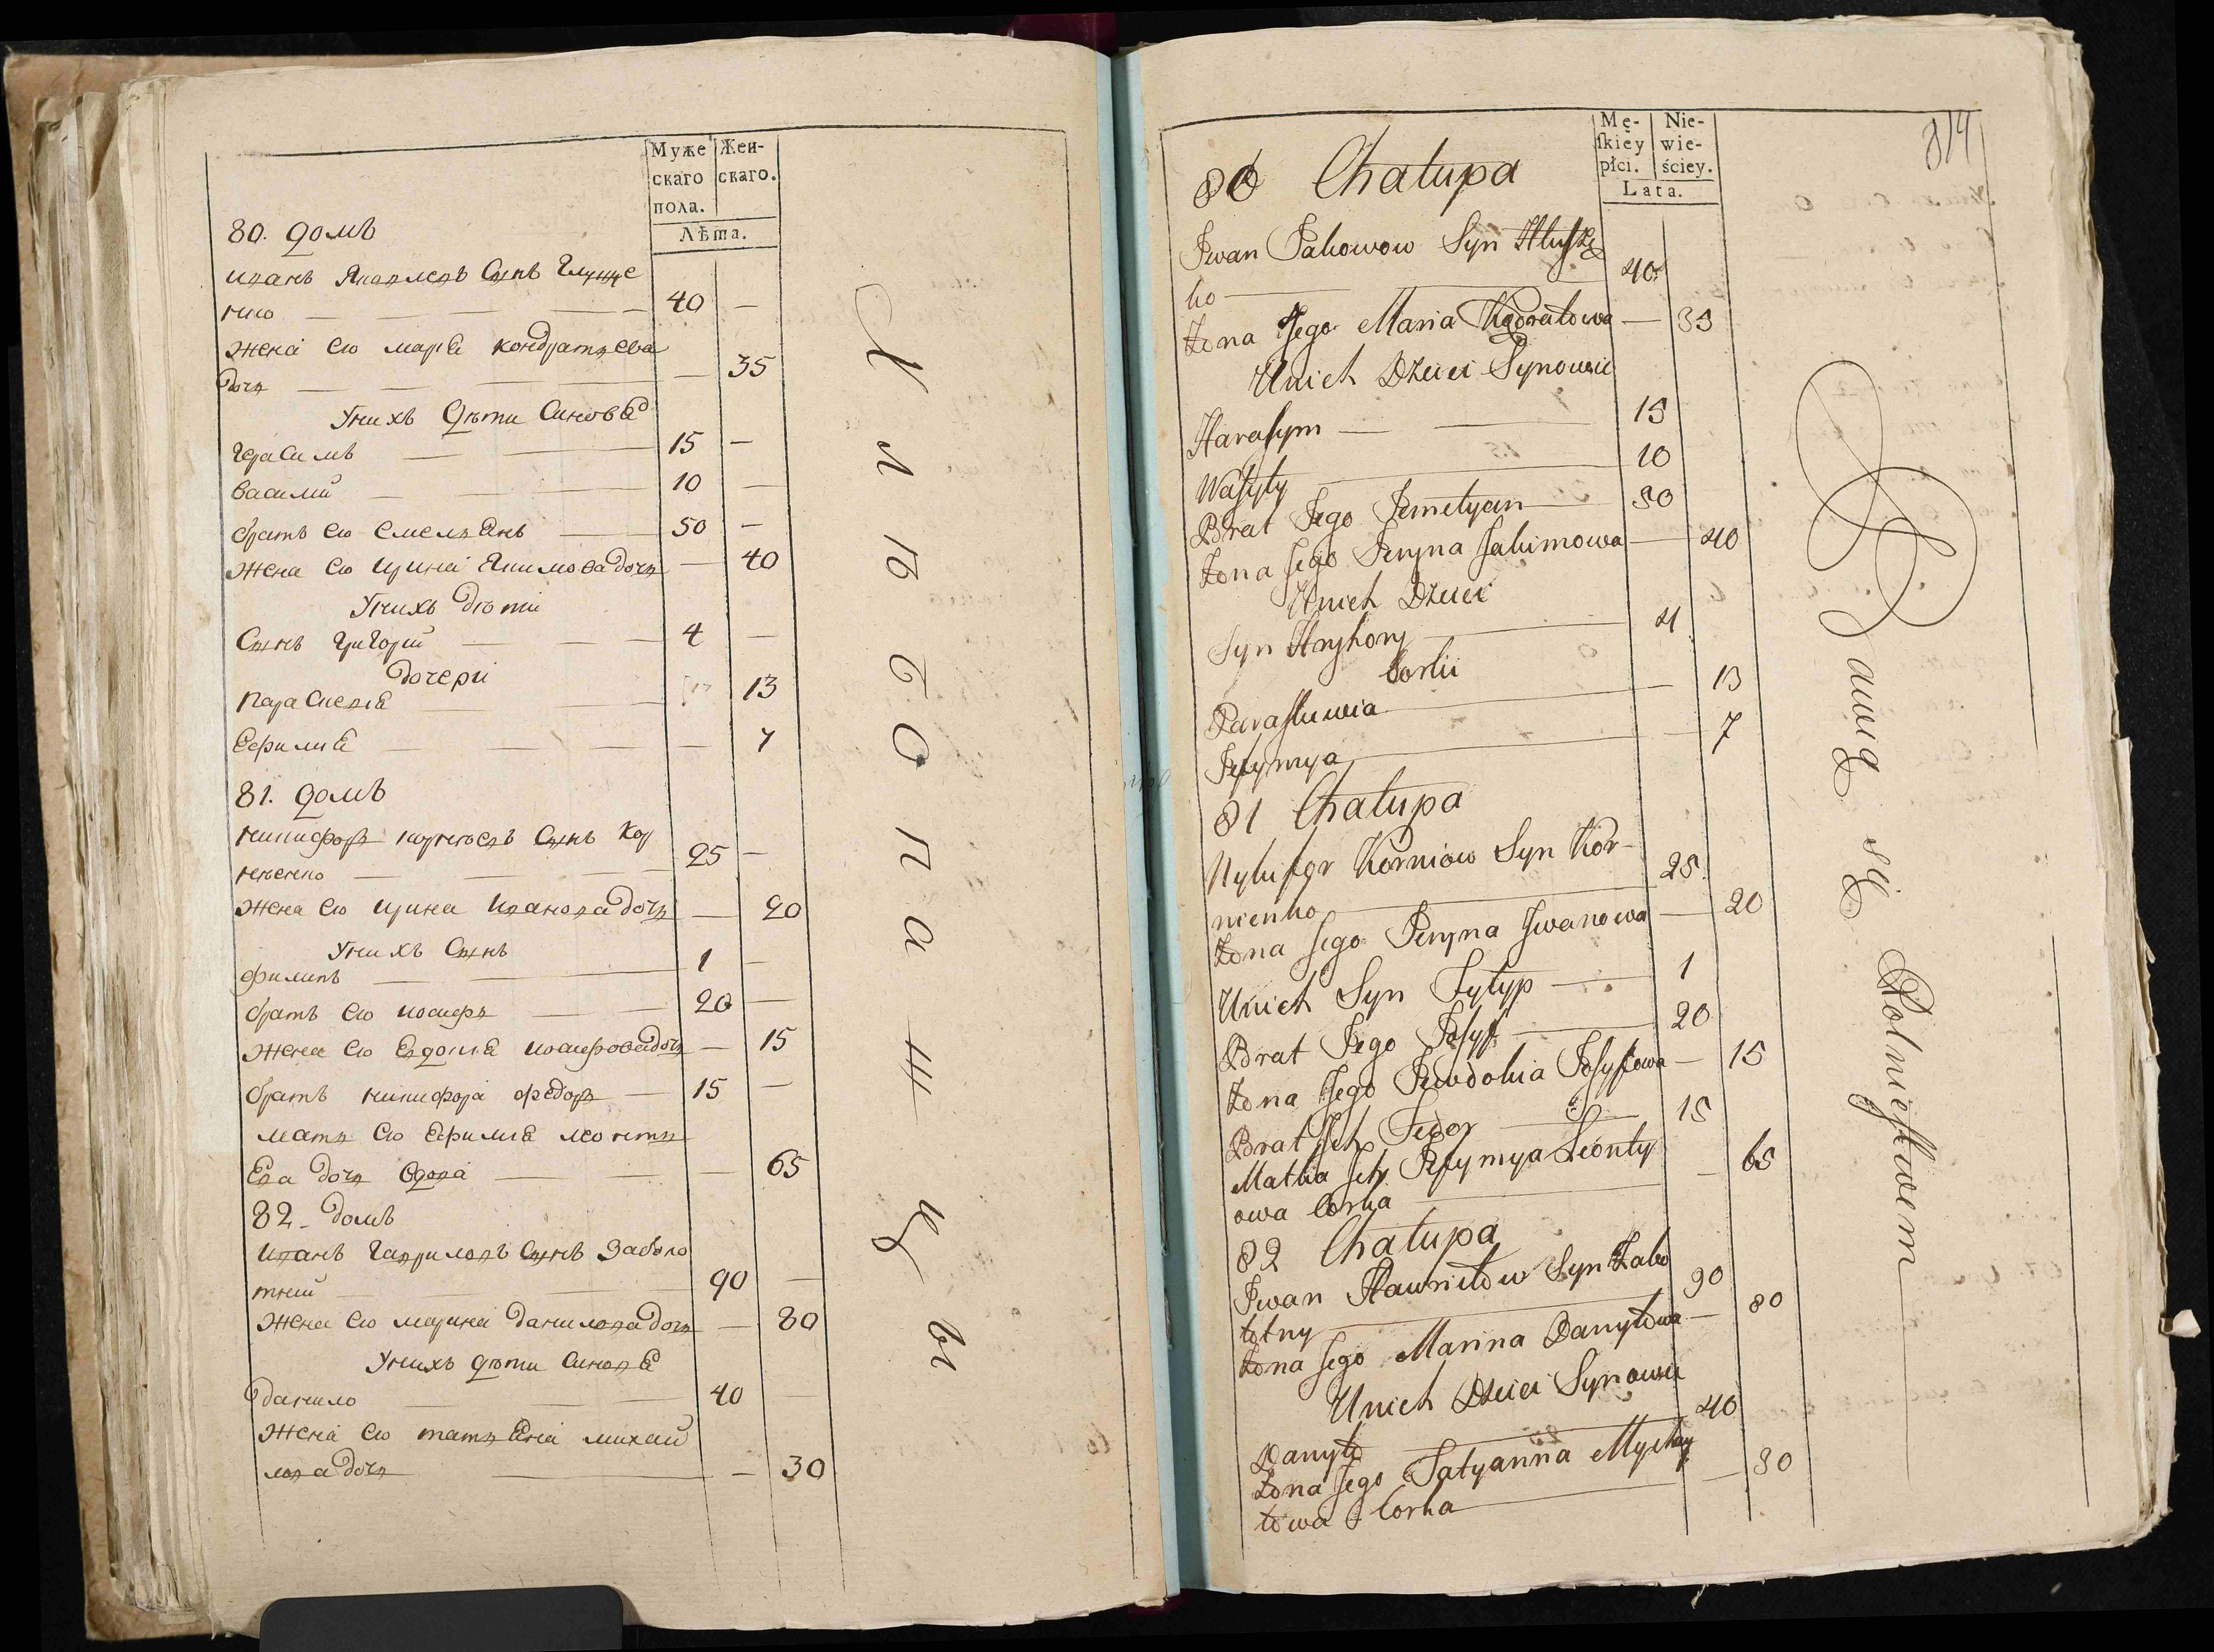 Муже
скаго
пола.
Жен-
скаго.
Лѣта.
80. домъ
иванъ Яковлевъ Сынъ Глуще
нко — 40 —
жена его мариа кондратьева
дочь — 35
У нихъ дѣти Синовѣя
Герасимъ — 15 —
василий — 10 —
братъ его Емельянъ — 50 —
жена его ирина Якимова дочь — 40
У нихъ дѣти
Сынъ Григорий — 4 —
дочери
параскевия — 13
Ефимия — 7
81. домъ
никифоръ корнѣевъ Сынъ Кор
нѣенко — 25 —
жена его ирина иванова дочь — 20
У нихъ Сынъ
филипъ — 1 —
братъ его иосифъ — 20 —
жена его Евдокиа иосифова дочь — 15
братъ никифора федоръ — 15 —
мать его Ефимиа леонтъ
Ева дочь вдова — 65
82. домъ
иванъ Гавриловъ Сынъ Заболо
тний — 90 —
жена его марина данилова дочь — 80
У нихъ дѣти Синовя
данило — 40 —
жена его татьяна михай
лова дочь — 30
Хлѣбопашцы
814
Mę-
ſkiey
płci.
Nie-
wie-
ściey.
Lata.
80 Chałupa
Iwan Jakowow Syn Hłuszcze
ko — 40
Żona Jego Maria Kądratowa — 35
Unich Dzieci Synowie
Harasym — 15
Wasyly — 10
Brat Jego Jemelyan — 50
Żona Jego Jeryna Jakimowa — 40
Unich Dzieci
Syn Hryhory — 4
Corki
Paraskiewia — 13
Jefymya — 7
81 Chałupa
Nykifor Korniow Syn Kor-
nienko — 25
Żona Jego Jeryna Iwanowa — 20
Unich Syn Fyłyp — 1
Brat Jego Josyf — 20
Żona Jego Jewdokia Josyfowa — 15
Brat Ich Fedor — 15
Matka Ich Jefymya Leonty
owa Corka — 65
82 Chałupa
Iwan Hawriłow Syn Zabo
łotny — 90
Żona Jego Marina Danyłowa — 80
Unich Dzieci Synowie
Danyło — 40
Żona Jego Tatyanna Mychay
łowa Corka — 30
Bawią się Rolnictwem